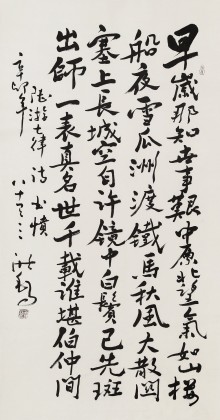 早歲那知世事艱中原北望氣如山樓
船夜雪瓜洲渡鐵馬秋風大散關
塞上長城空自許鏡中白鬢已先斑
出師一表真名世千載誰堪伯仲間
陸游七律詩書憤
辛卯年八十三